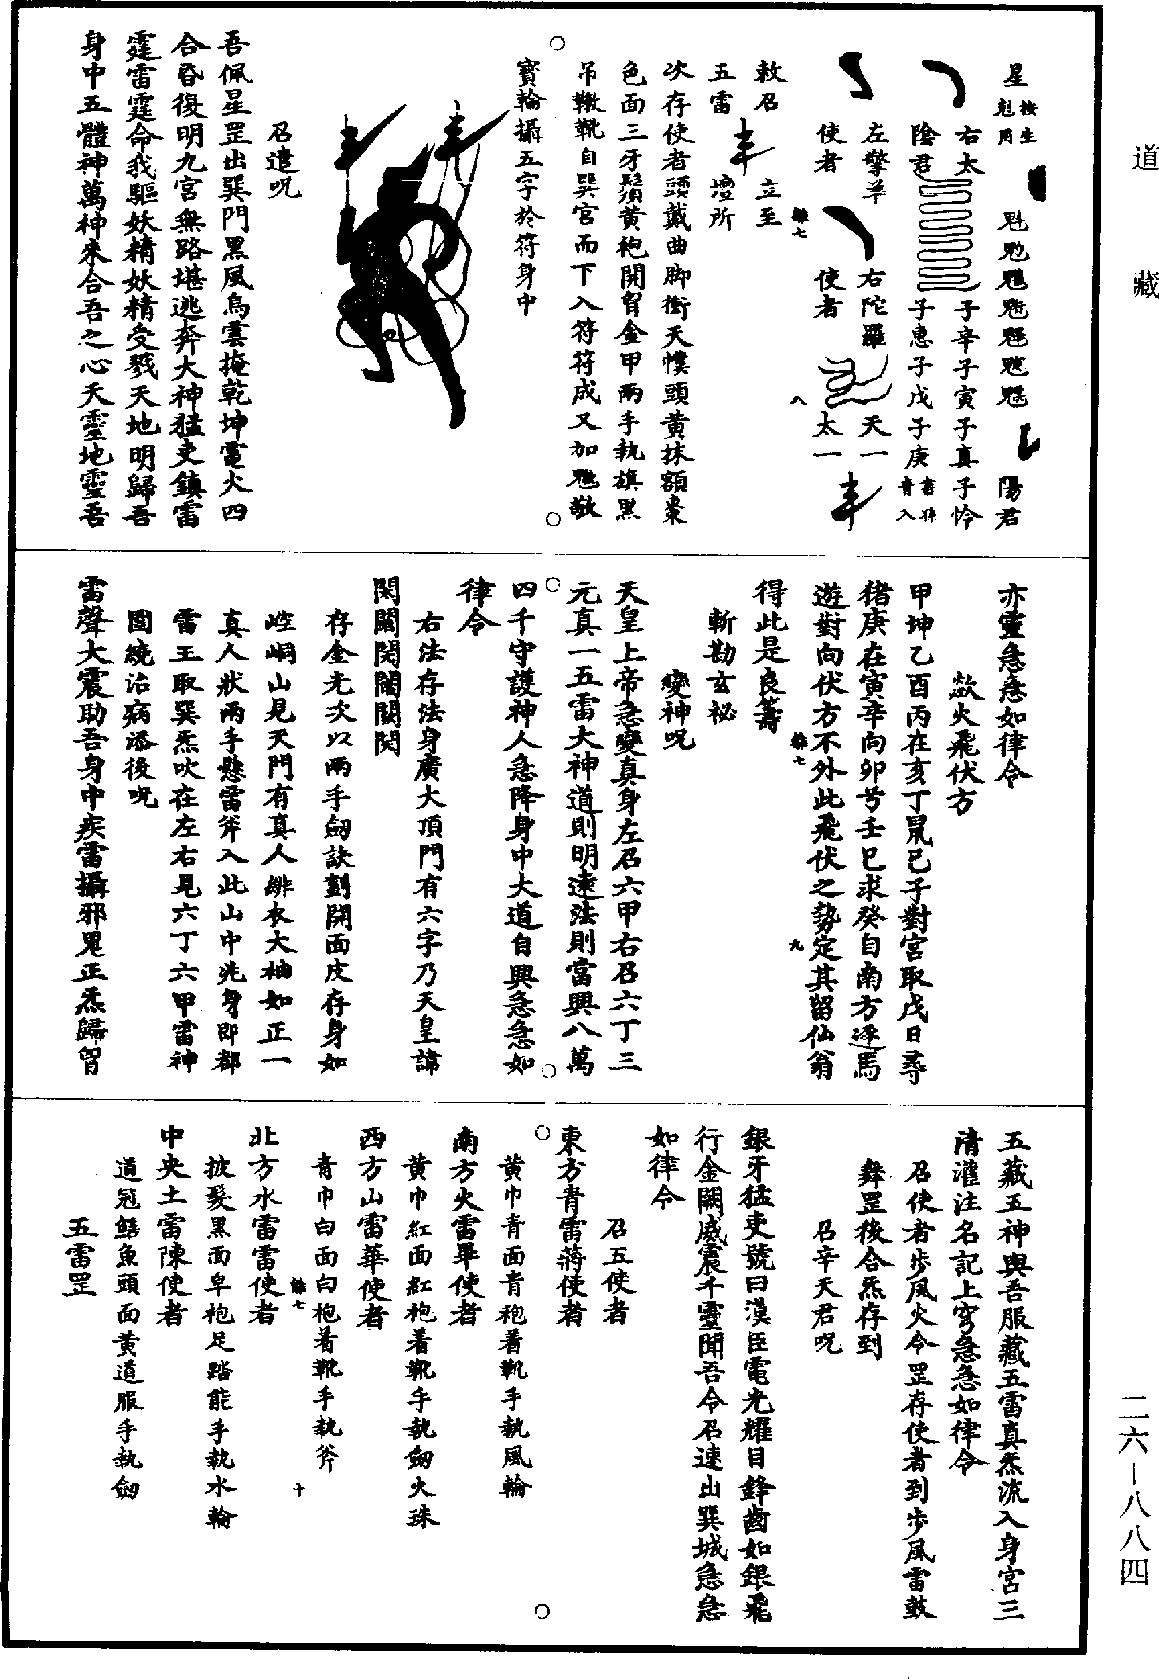 道藏
星
按生
魁用
魁
陽君
右太
子辛子寅子真子怜
陰君
子惠子戊子庚
左擎羊
右陀羅
天一
使者
使者
太一
敕召
立至
五雷
壇所
次存使者頭戴曲脚衝天幞頭黃抹額棗
色面三牙鬚黃袍開胷金甲兩手執旗黑
吊鞋靴自巽宮而下入符符成又加魒敬
寶輪攝五字於符身中
召遣呪
吾佩星罡出巽門黑風烏雲掩乾坤電火四
合昏復明九宮無路堪逃奔大神猛吏鎮雷
霆雷霆命我驅妖精妖精受戮天地明歸吾
身中五體神萬神來合吾之心天靈地靈吾
亦靈急急如律令
歘火飛伏方
甲坤乙酉丙在亥丁鼠己子對宮取戊日尋
猪庚在寅辛向卯兮壬巳求癸自南方逐馬
遊對向伏方不外此飛伏之勢定其留仙翁
得此是良籌
斬勘玄祕
變神呪
天皇上帝急變真身左召六甲右召六丁三
元真一五雷大神道則明遠法則當興八萬
四千守護神人急降身中大道自興急急如
律令
右法存法身廣大頂門有六字乃天皇諱
存金光次以兩手劒訣劃開面皮存身如
崆峒山見天門有真人緋衣大袖如正一
真人狀兩手懸雷斧入此山中兆身即都
雷王取巽炁吹在左右見六丁六甲雷神
圍繞治病添後呪
雷聲大震助吾身中疾雷攝邪鬼正炁歸胷
五藏五神與吾服藏五雷真炁流入身宮三
清灌注名記上穹急急如律令
召使者步風火令罡存使者到步風雷鼓
舞罡後合炁存到
召辛天君呪
銀牙猛吏號曰漢臣電光耀目鋒齒如銀飛
行金闕威震千靈聞吾令召速出巽城急急
如律令
召五使者
東方青雷蔣使者
黃巾青面青袍着靴手執風輪
南方火雷畢使者
黃巾紅面紅袍着靴手執劒火珠
西方山雷華使者
青巾白面白袍着靴手執斧
北方水雷雷使者
披髮黑面皁袍足踏能手執水輪
中央土雷陳使者
道冠鯌魚頭面黃道服手執劒
五雷罡
二六—八八四